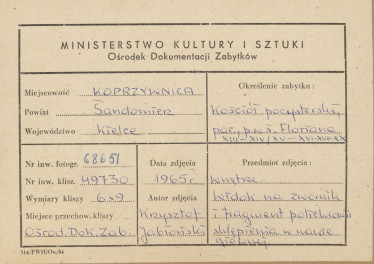 MINISTERSTWO KULTURY I SZTUKI
Ośrodek Dokumentacji Zabytków
Miejscowość KOPRZYWNICA
Powiat Sandomierz
Województwo Kielce
Określenie zabytku:
Kościół pocysterski,
par. p.w. ś. Floriana
XIII-XIV/XV-XVI-XVII-XX
Nr inw. fotogr. 68651
Nr inw. klisz. 49730
Wymiary kliszy 6x9
Miejsce przechow. kliszy
Ośrod. Dok. Zab.
Data zdjęcia
1965 r.
Autor zdjęcia
Krzysztof
Jabłoński
Przedmiot zdjęcia:
wnętrze
widok na zwornik
i fragment polichromii
sklepienia w nawie
głównej